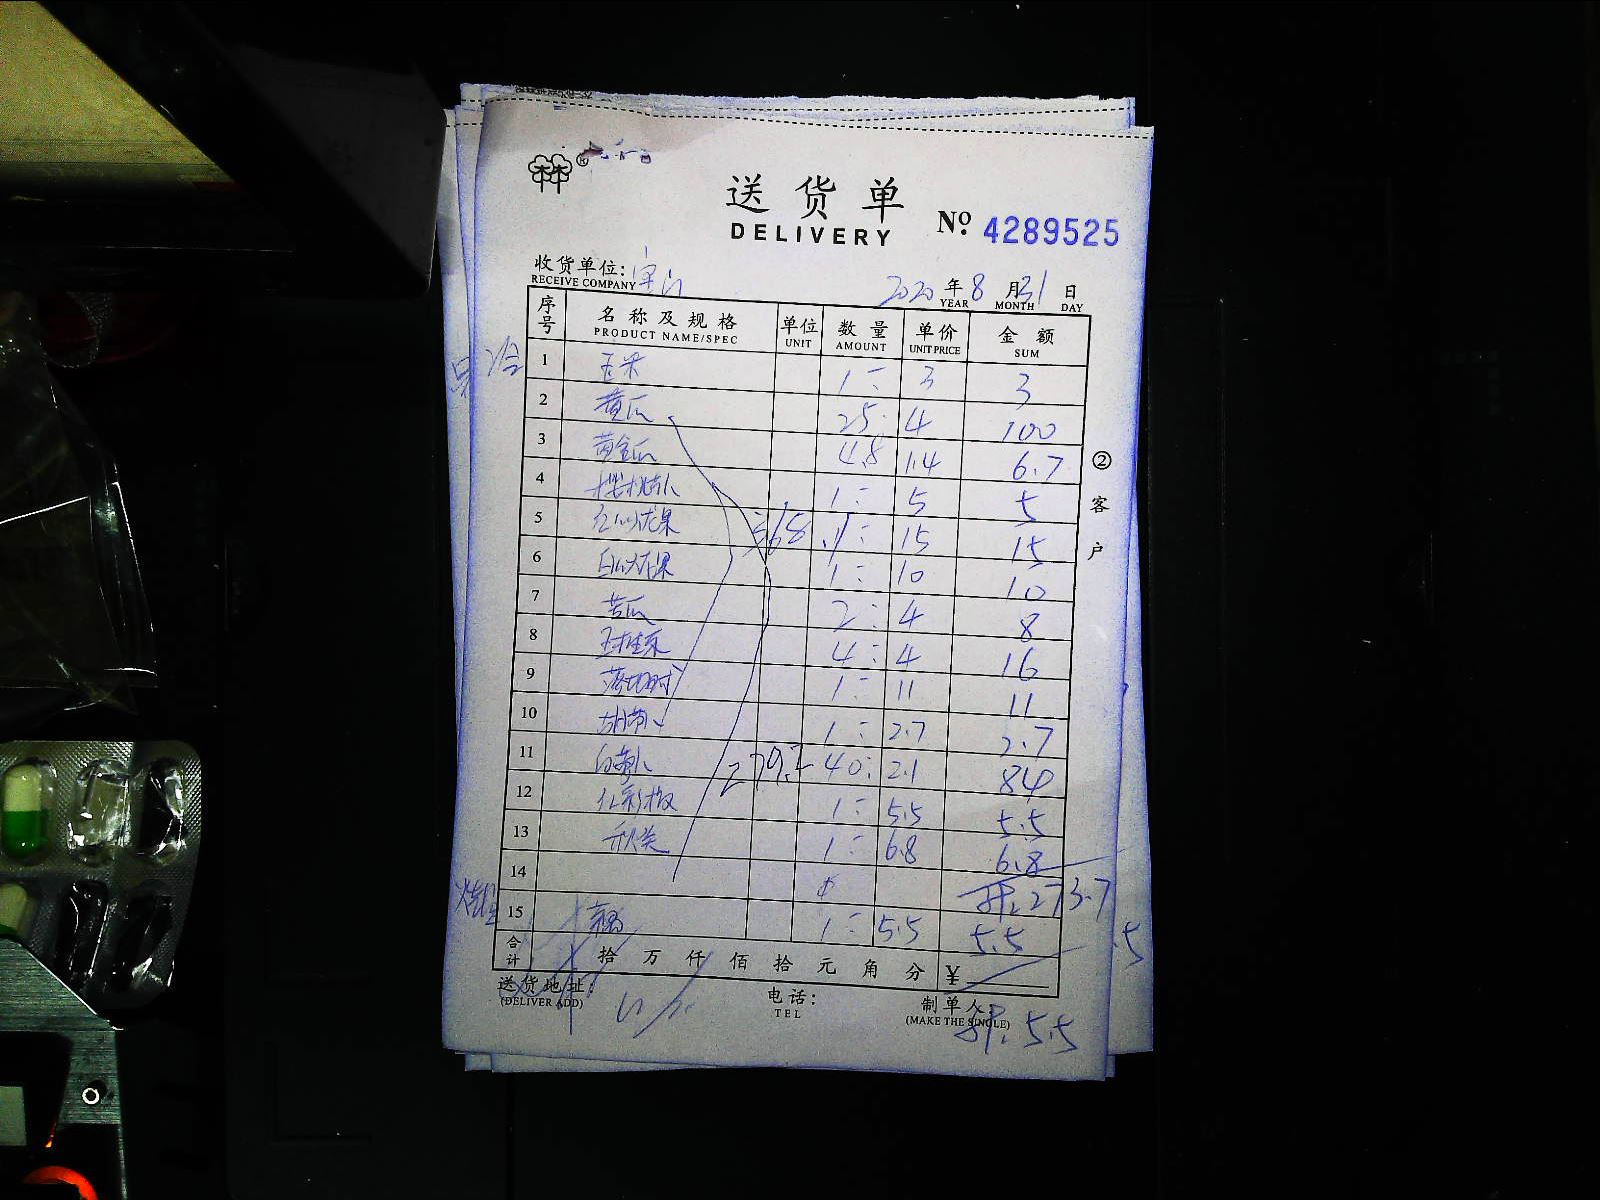 送货单
DELIVERY
№ 4289525
收货单位:
RECEIVE COMPANY
2020 年 8 月 31 日
YEAR MONTH DAY
序号 名称及规格 单位 数量 单价 金额
PRODUCT NAME/SPEC UNIT AMOUNT UNIT PRICE SUM
1 玉米 1 3 3
2 黄瓜 25 4 100
3 黄金瓜 4.8 1.4 6.7
4 樱桃萝卜 1 5 5
5 红心火龙果 1 15 15
6 白心火龙果 1 10 10
7 苦瓜 2 4 8
8 4 4 16
9 1 11 11
10 胡萝卜 1 2.7 2.7
11 白萝卜 40 2.1 84
12 红彩椒 1 5.5 5.5
13 秋葵 1 6.8 6.8
14 273.7
15 1 5.5 5.5
合计 拾 万 仟 佰 拾 元 角 分 ¥
送货地址:
(DELIVER ADD)
电话:
TEL
制单人:
(MAKE THE SINGLE)
5.5
②客户